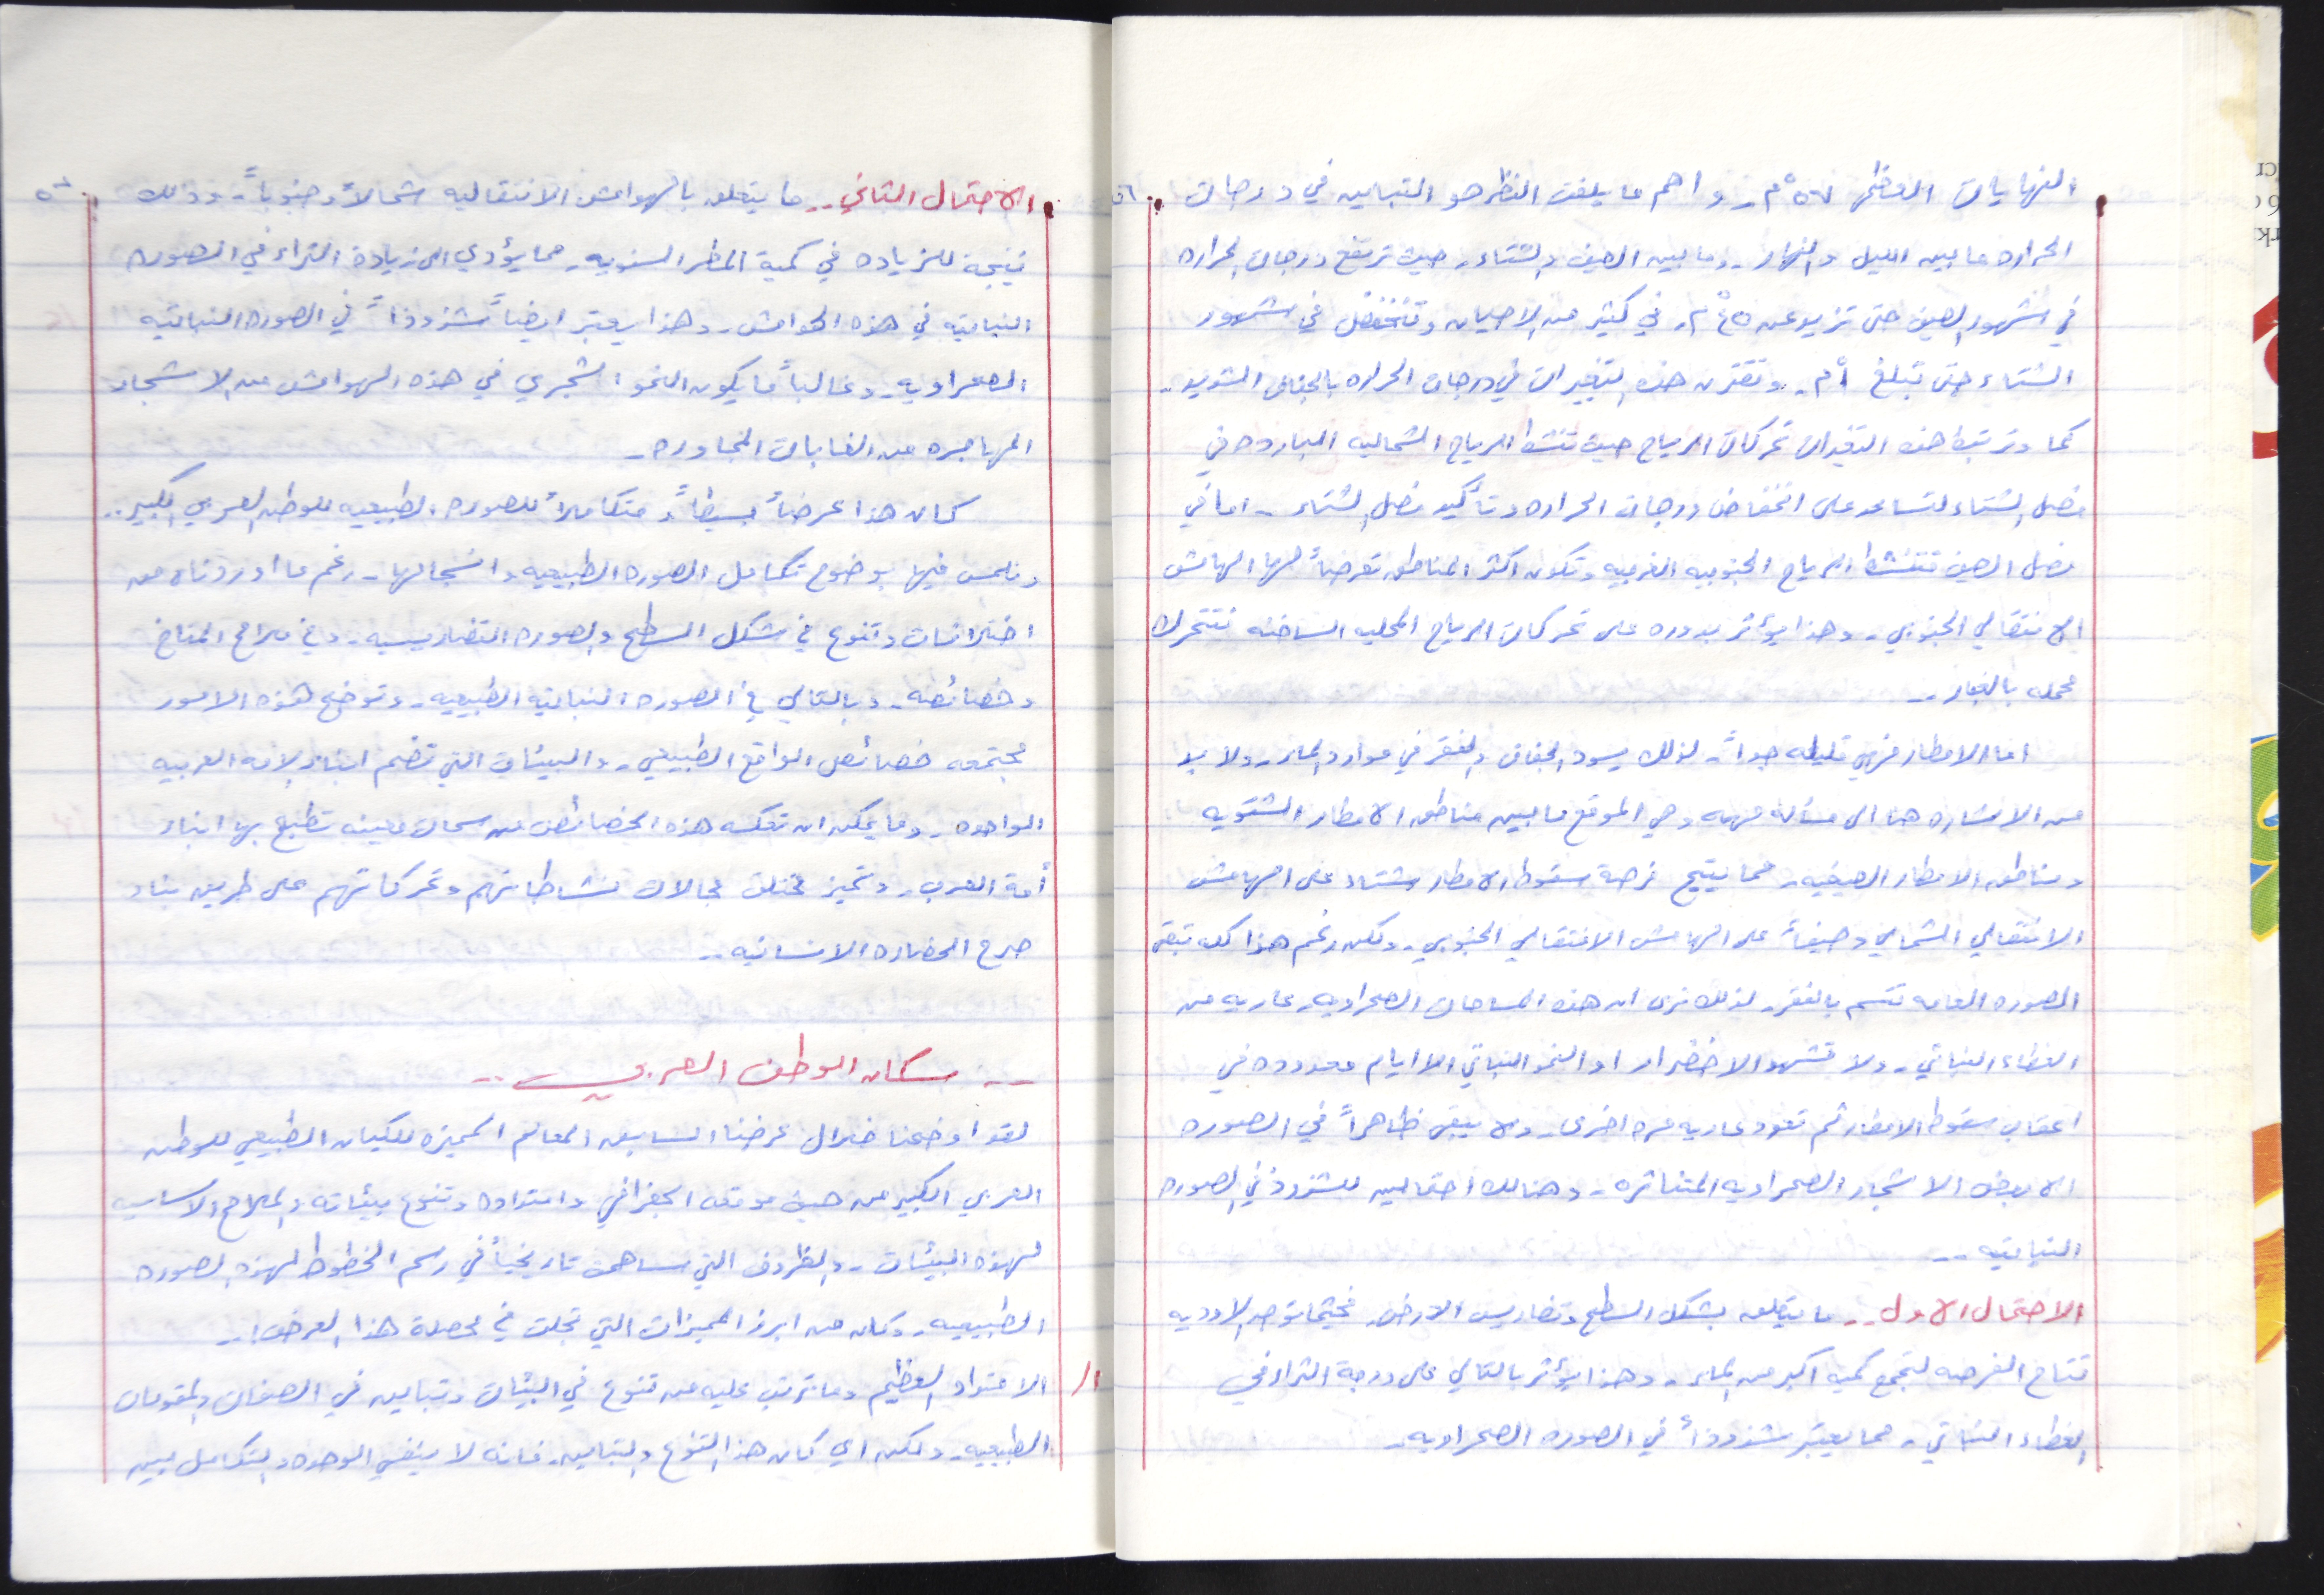 النهايات العظمى ٥٧°م ـ واهم ما يلفت النظر هو التباين في درجات
الحراره ما بين الليل والنهار ـ وما بين الصيف والشتاء ـ حيث ترتفع درجات الحراره
في شهور الصيف حتى تزيد عن ٤٥°م ـ في كثير من الاحيان وتنخفض في شهور
الشتاء حتى تبلغ ١°م ـ وتقترن هذه التغيرات في درجات الحراره بالجفاف الشديد ـ
كما وترتبط هذه التغيرات تحركات الرياح حيث تنشط الرياح الشماليه البارده في
فصل الشتاء لتساعد على انخفاض درجات الحراره وتأكيد فصل الشتاء ـ اما في
فصل الصيف فتنشط الرياح الجنوبيه الغربيه وتكون اكثر المناطق تعرضاً لها الهامش
الانتقالي الجنوبي ـ وهذا يؤثر بدوره على تحركات الرياح المحليه الساخنه فتتحرك
محمله بالغبار ــ
اما الامطار فهي قليله جداً ـ لذلك يسود الجفاف والفقر في موارد الماء ـ ولا بد
من الاشاره هنا الى مسأله مهمه وهي الموقع ما بين مناطق الامطار الشتويه
ومناطق الامطار الصيفيه ـ مما يتيح فرصة سقوط الامطار شتاء على الهامش
الانتقالي الشمالي وصيفاً على الهامش الانتقالي الجنوبي ـ ولكن رغم هذا كله تبقى
الصوره العامه تتسم بالفقر ـ لذلك نرى ان هذه المساحات الصحراويه ـ عاريه من
الغطاء النباتي ـ ولا تشهد الاخضرار او النمو النباتي الا ايام معدوده في
اعقاب سقوط الامطار ثم تعود عاريه مره اخرى ـ ولا يبقى ظاهراً في الصوره
الا بعض الاشجار الصحراويه المتناثره ـ وهنالك احتمالين للشذوذ في الصوره
النباتيه ــ
الاحتمال الاول ــ ما يتعلق بشكل السطح وتضاريس الارض ـ فحيثما توجد الاوديه
تتاح الفرصه لتجمع كميه اكبر من الماء ـ وهذا يؤثر بالتالي على درجة الثراء في
الغطاء النباتي ـ مما يعتبر شذوذاً في الصوره الصحراويه ـ
الاحتمال الثاني ــ ما يتعلق بالهوامش الانتقاليه شمالاً وجنوباً ـ وذلك
نتيجة للزياده في كمية المطر السنويه ـ مما يؤدي الى زيادة الثراء في الصوره
النباتيه في هذه الهوامش ـ وهذا يعتبر ايضاً شذوذاً في الصوره النباتيه
الصحراويه ـ وغالباً ما يكون النمو الشجري في هذه الهوامش من الاشجار
المهاجره من الغابات المجاوره ـ
كان هذا عرضاً بسيطاً ومتكاملاً للصوره الطبيعيه للوطن العربي الكبير ــ
ونلمس فيها بوضوح تكامل الصوره الطبيعيه وانسجامها ـ رغم ما اوردناه من
اختلافات وتنوع في شكل السطح والصوره التضاريسيه ـ وفي ملامح المناخ
وخصائصه ـ وبالتالي في الصوره النباتيه الطبيعيه ـ وتوضح هذه الامور
مجتمعه خصائص الواقع الطبيعي ـ والبيئات التي تضم ابناء الامه العربيه
الواحده ـ وما يمكن ان تعكسه هذه الخصائص من سمات معينه تطبع بها ابناء
أمة العرب ـ وتميز مختلف مجالات نشاطاتهم وتحركاتهم على طريق بناء
صرح الحضاره الانسانيه ــ
ــ سكان الوطن العربي ــ
لقد اوضحنا خلال عرضنا السابق المعالم المميزه للكيان الطبيعي للوطن
العربي الكبير من حيث موقعه الجغرافي وامتداده وتنوع بيئاته والملامح الاساسيه
لهذه البيئات ـ والظروف التي ساهمت تاريخياً في رسم الخطوط لهذه الصوره
الطبيعيه ـ وكان من ابرز المميزات التي تجلت في محصلة هذا العرض :ـ
١/ الامتداد العظيم وما ترتب عليه من تنوع في البيئات وتباين في الصفات والمقومات
الطبيعيه ـ ولكن اي كان هذا التنوع والتباين ـ فانه لا ينفي الوحده والتكامل بين